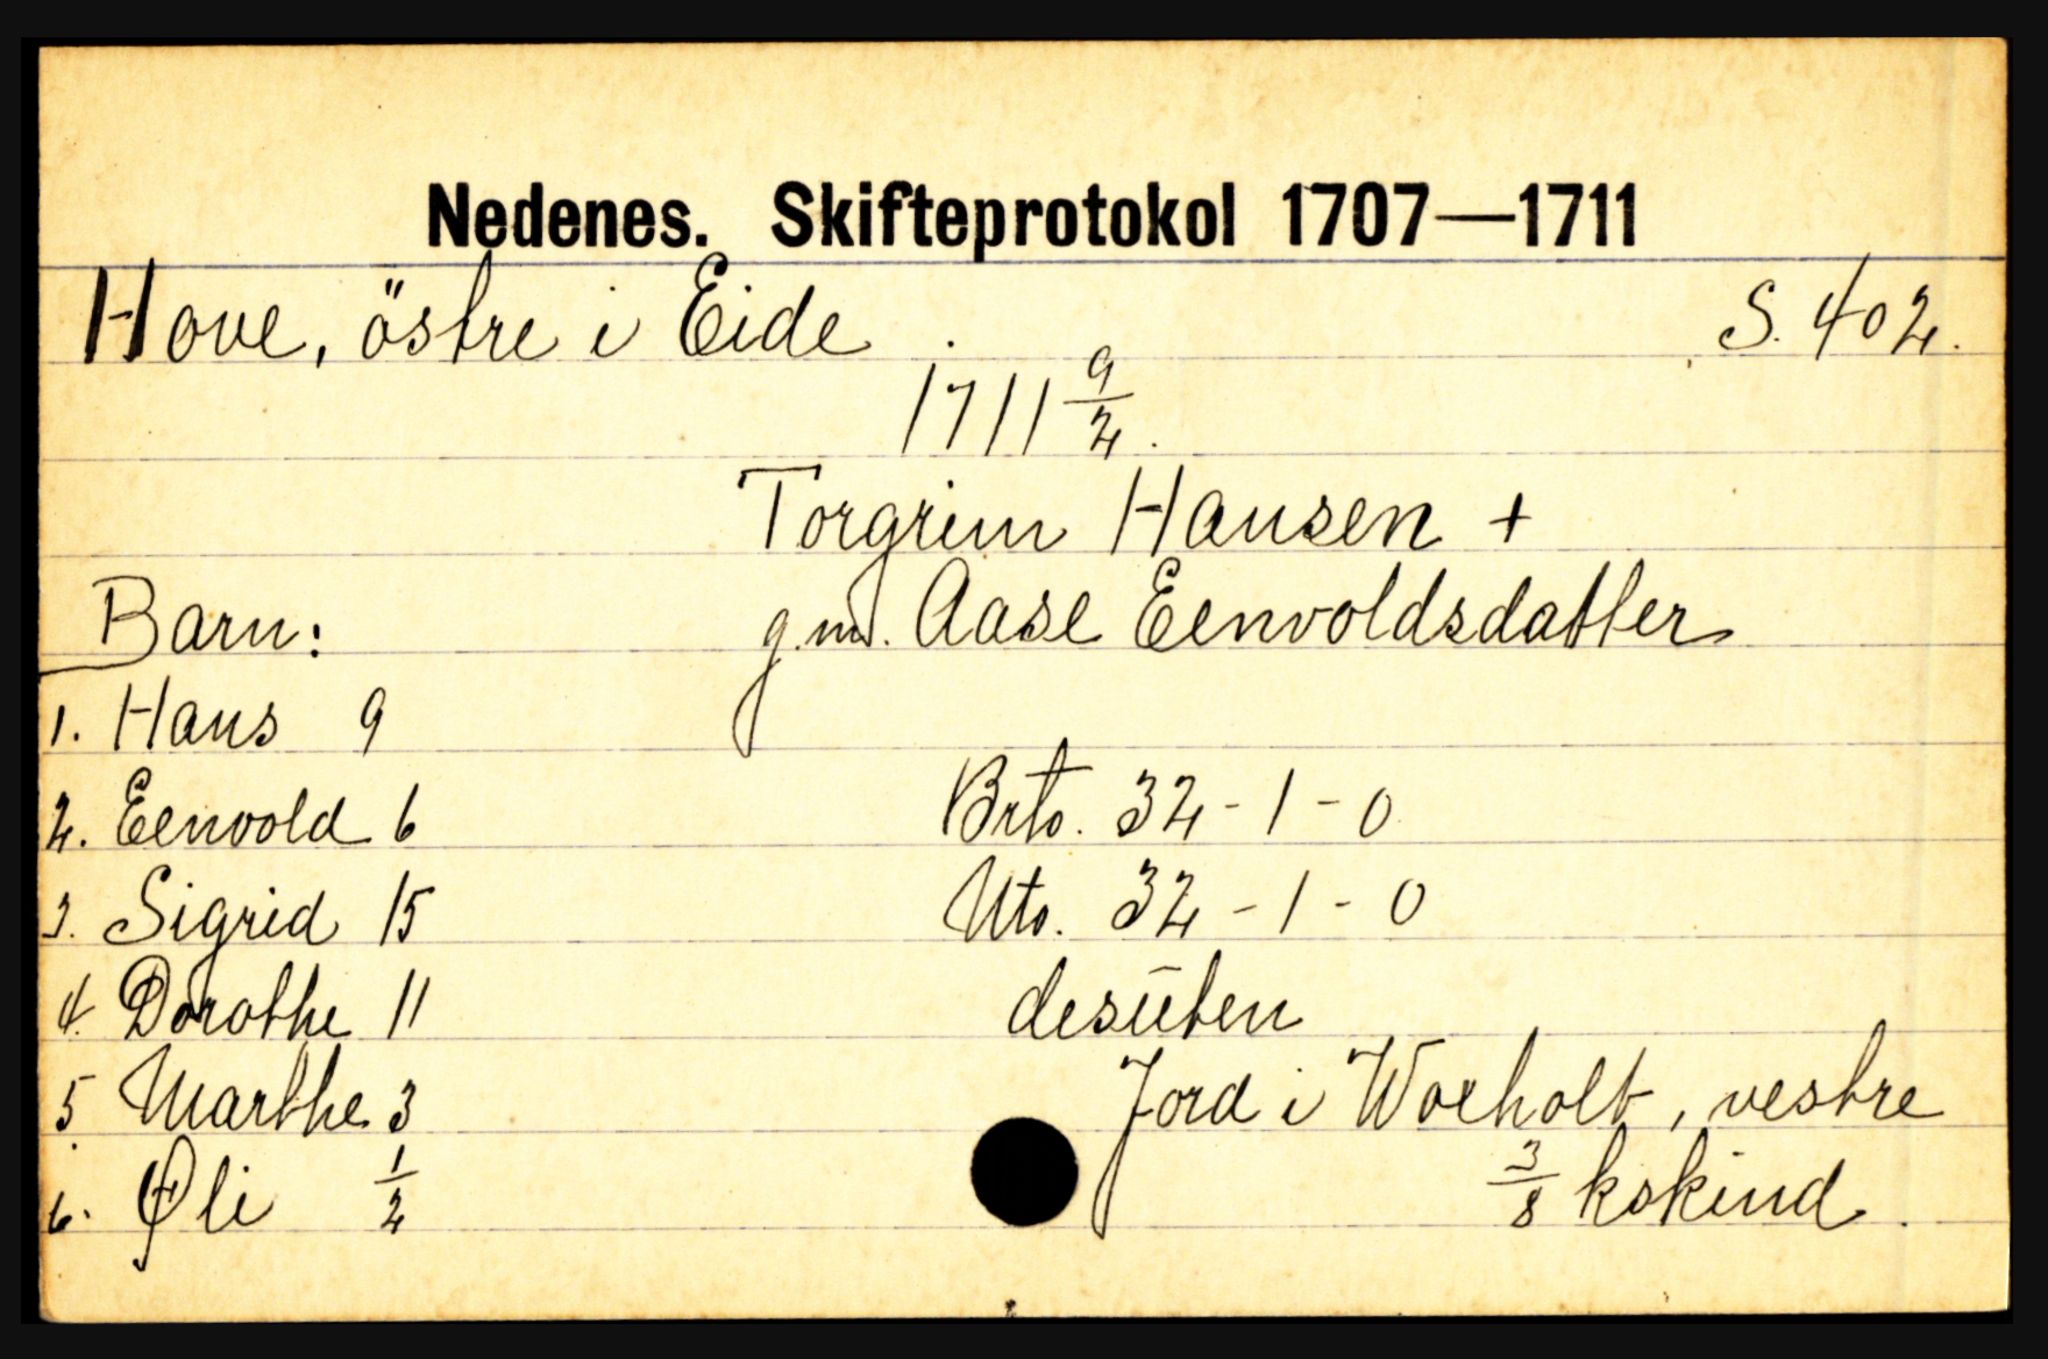 Nedenes. Skifteprotokol 1707—1711
Hove, östre i Eide S. 402.
1711 9/2.
Torgrim Hansen +
g.m. Aase Eenvoldsdatter
Barn:
1. Hans 9
2. Eenvold 6
3. Sigrid 15
4. Dorothe 11
5 Marthe 3
6. Øli 1/2
Brto. 32 - 1 - 0
Nto. 32 - 1 - 0
desūten
Jord i Woeholt, vestre
3/8 kskind.